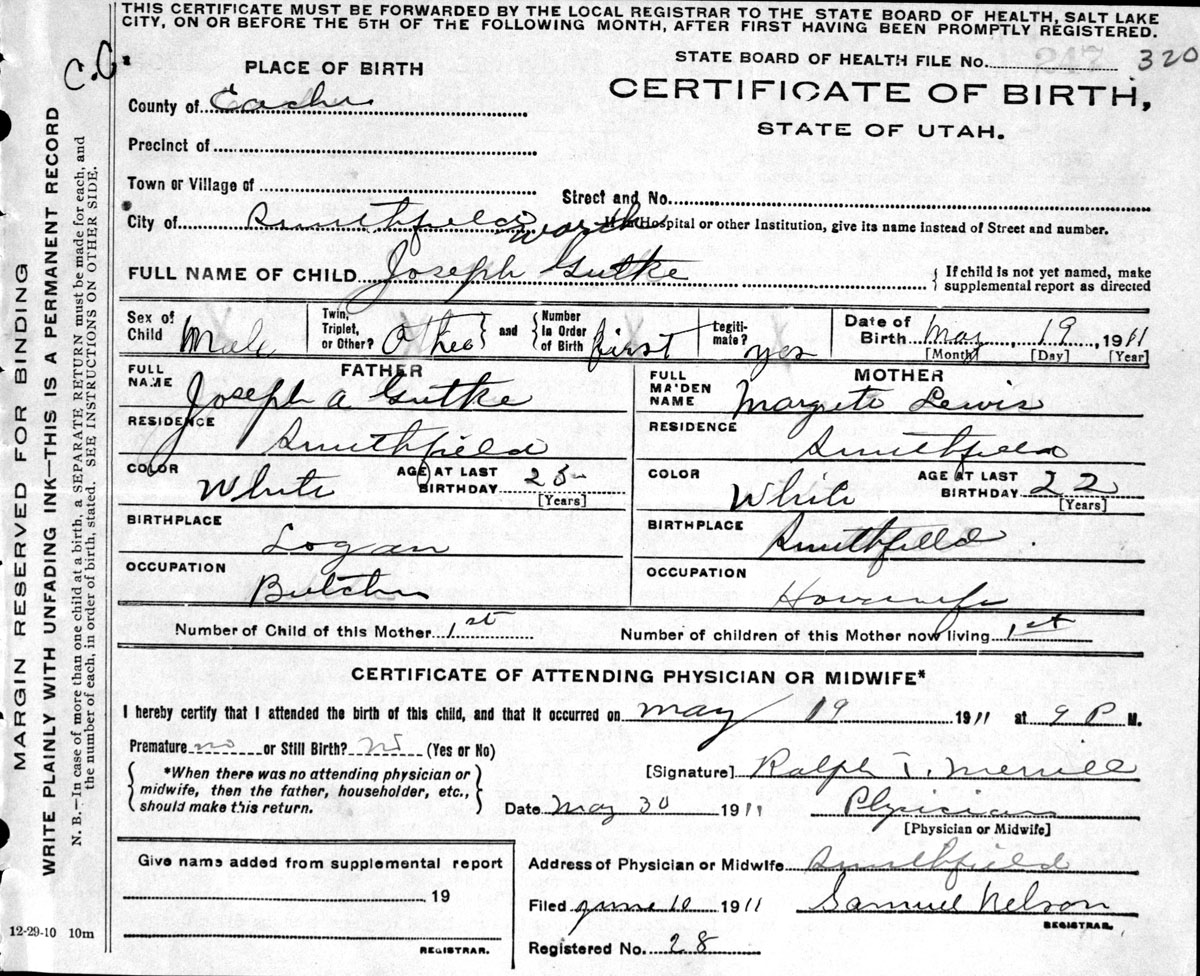 THIS CERTIFICATE MUST BE FORWARDED BY THE LOCAL REGISTRAR TO THE STATE BOARD OF HEALTH, SALT LAKE
CITY, ON OR BEFORE THE 5TH OF THE FOLLOWING MONTH, AFTER FIRST HAVING BEEN PROMPTLY REGISTERED.
MARGIN RESERVED FOR BINDING
WRITE PLAINLY WITH UNFADING INK—THIS IS A PERMANENT RECORD
N. B.—In case of more than one child at a birth, a SEPARATE RETURN must be made for each, and
the number of each, in order of birth, stated. SEE INSTRUCTIONS ON OTHER SIDE.
C.C.
STATE BOARD OF HEALTH FILE No. 247 320
PLACE OF BIRTH
CERTIFICATE OF BIRTH,
STATE OF UTAH.
County of Cache
Precinct of
Town or Village of
Street and No.
City of Smithfield
If in Hospital or other Institution, give its name instead of Street and number.
Worth
FULL NAME OF CHILD Joseph Gutke
{ If child is not yet named, make
supplemental report as directed
Sex of Child Male
Twin, Triplet, or Other? Other } and { Number in Order of Birth first
Legitimate? yes
Date of Birth May 19 1911
[Month] [Day] [Year]
FATHER
FULL NAME Joseph A Gutke
RESIDENCE Smithfield
COLOR White AGE AT LAST BIRTHDAY 25 [Years]
BIRTHPLACE Logan
OCCUPATION Butcher
MOTHER
FULL MAIDEN NAME Margrete Lewis
RESIDENCE Smithfield
COLOR White AGE AT LAST BIRTHDAY 22 [Years]
BIRTHPLACE Smithfield
OCCUPATION Housewife
Number of Child of this Mother 1st Number of children of this Mother now living 1st
CERTIFICATE OF ATTENDING PHYSICIAN OR MIDWIFE*
I hereby certify that I attended the birth of this child, and that it occurred on May 19 1911 at 9 P M.
Premature no or Still Birth? no (Yes or No)
{ *When there was no attending physician or
midwife, then the father, householder, etc.,
should make this return. }
[Signature] Ralph T. Merrill
Date May 30 1911 Physician
[Physician or Midwife]
Give name added from supplemental report
19
REGISTRAR.
Address of Physician or Midwife Smithfield
Filed June 10 1911 Samuel Nelson
REGISTRAR.
Registered No. 28
12-29-10 10m